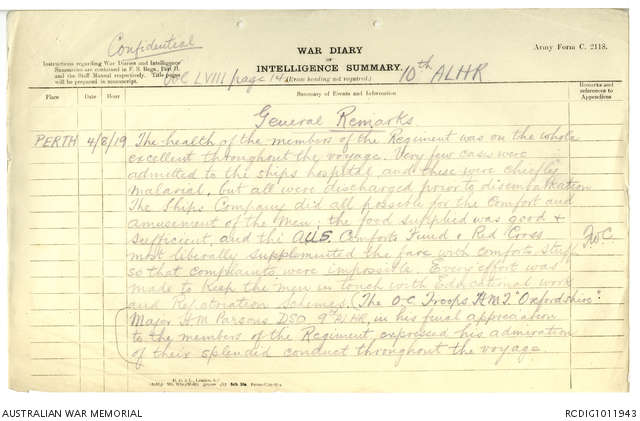 Confidential
WAR DIARY
OF
INTELLIGENCE SUMMARY.
(Erase heading not required.)
Army Form C. 2118.
Instructions regarding War Diaries and Intelligence
Summaries are contained in F. S. Regs., Part II.
and the Staff Manual respectively. Title pages
will be prepared in manuscript.
Vol LVIII page 14
10th ALHR
Place
Date
Hour
Summary of Events and Information
Remarks and
references to
Appendices
General Remarks
PERTH 4/8/19 The health of the members of the Regiment was on the whole
excellent throughout the voyage. Very few cases were
admitted to the ships hospital and these were chiefly
malarial, but all were discharged prior to disembarkation
The Ships Company did all possible for the comfort and
amusement of the men; the food supplied was good &
sufficient, and the AUS. Comforts Fund & Red Cross
most liberally supplemented the fare with comforts
so that complaints were impossible. Every effort was
made to keep the men in touch with Educational work
and Repatriation Schemes. (The O.C Troops H.M.T "Oxfordshire"
Major H M Parsons DSO 9th ALHR, in his final appreciation
to the members of the Regiment expressed his admiration
of their splendid conduct throughout the voyage.
AUSTRALIAN WAR MEMORIAL
RCDIG1011943